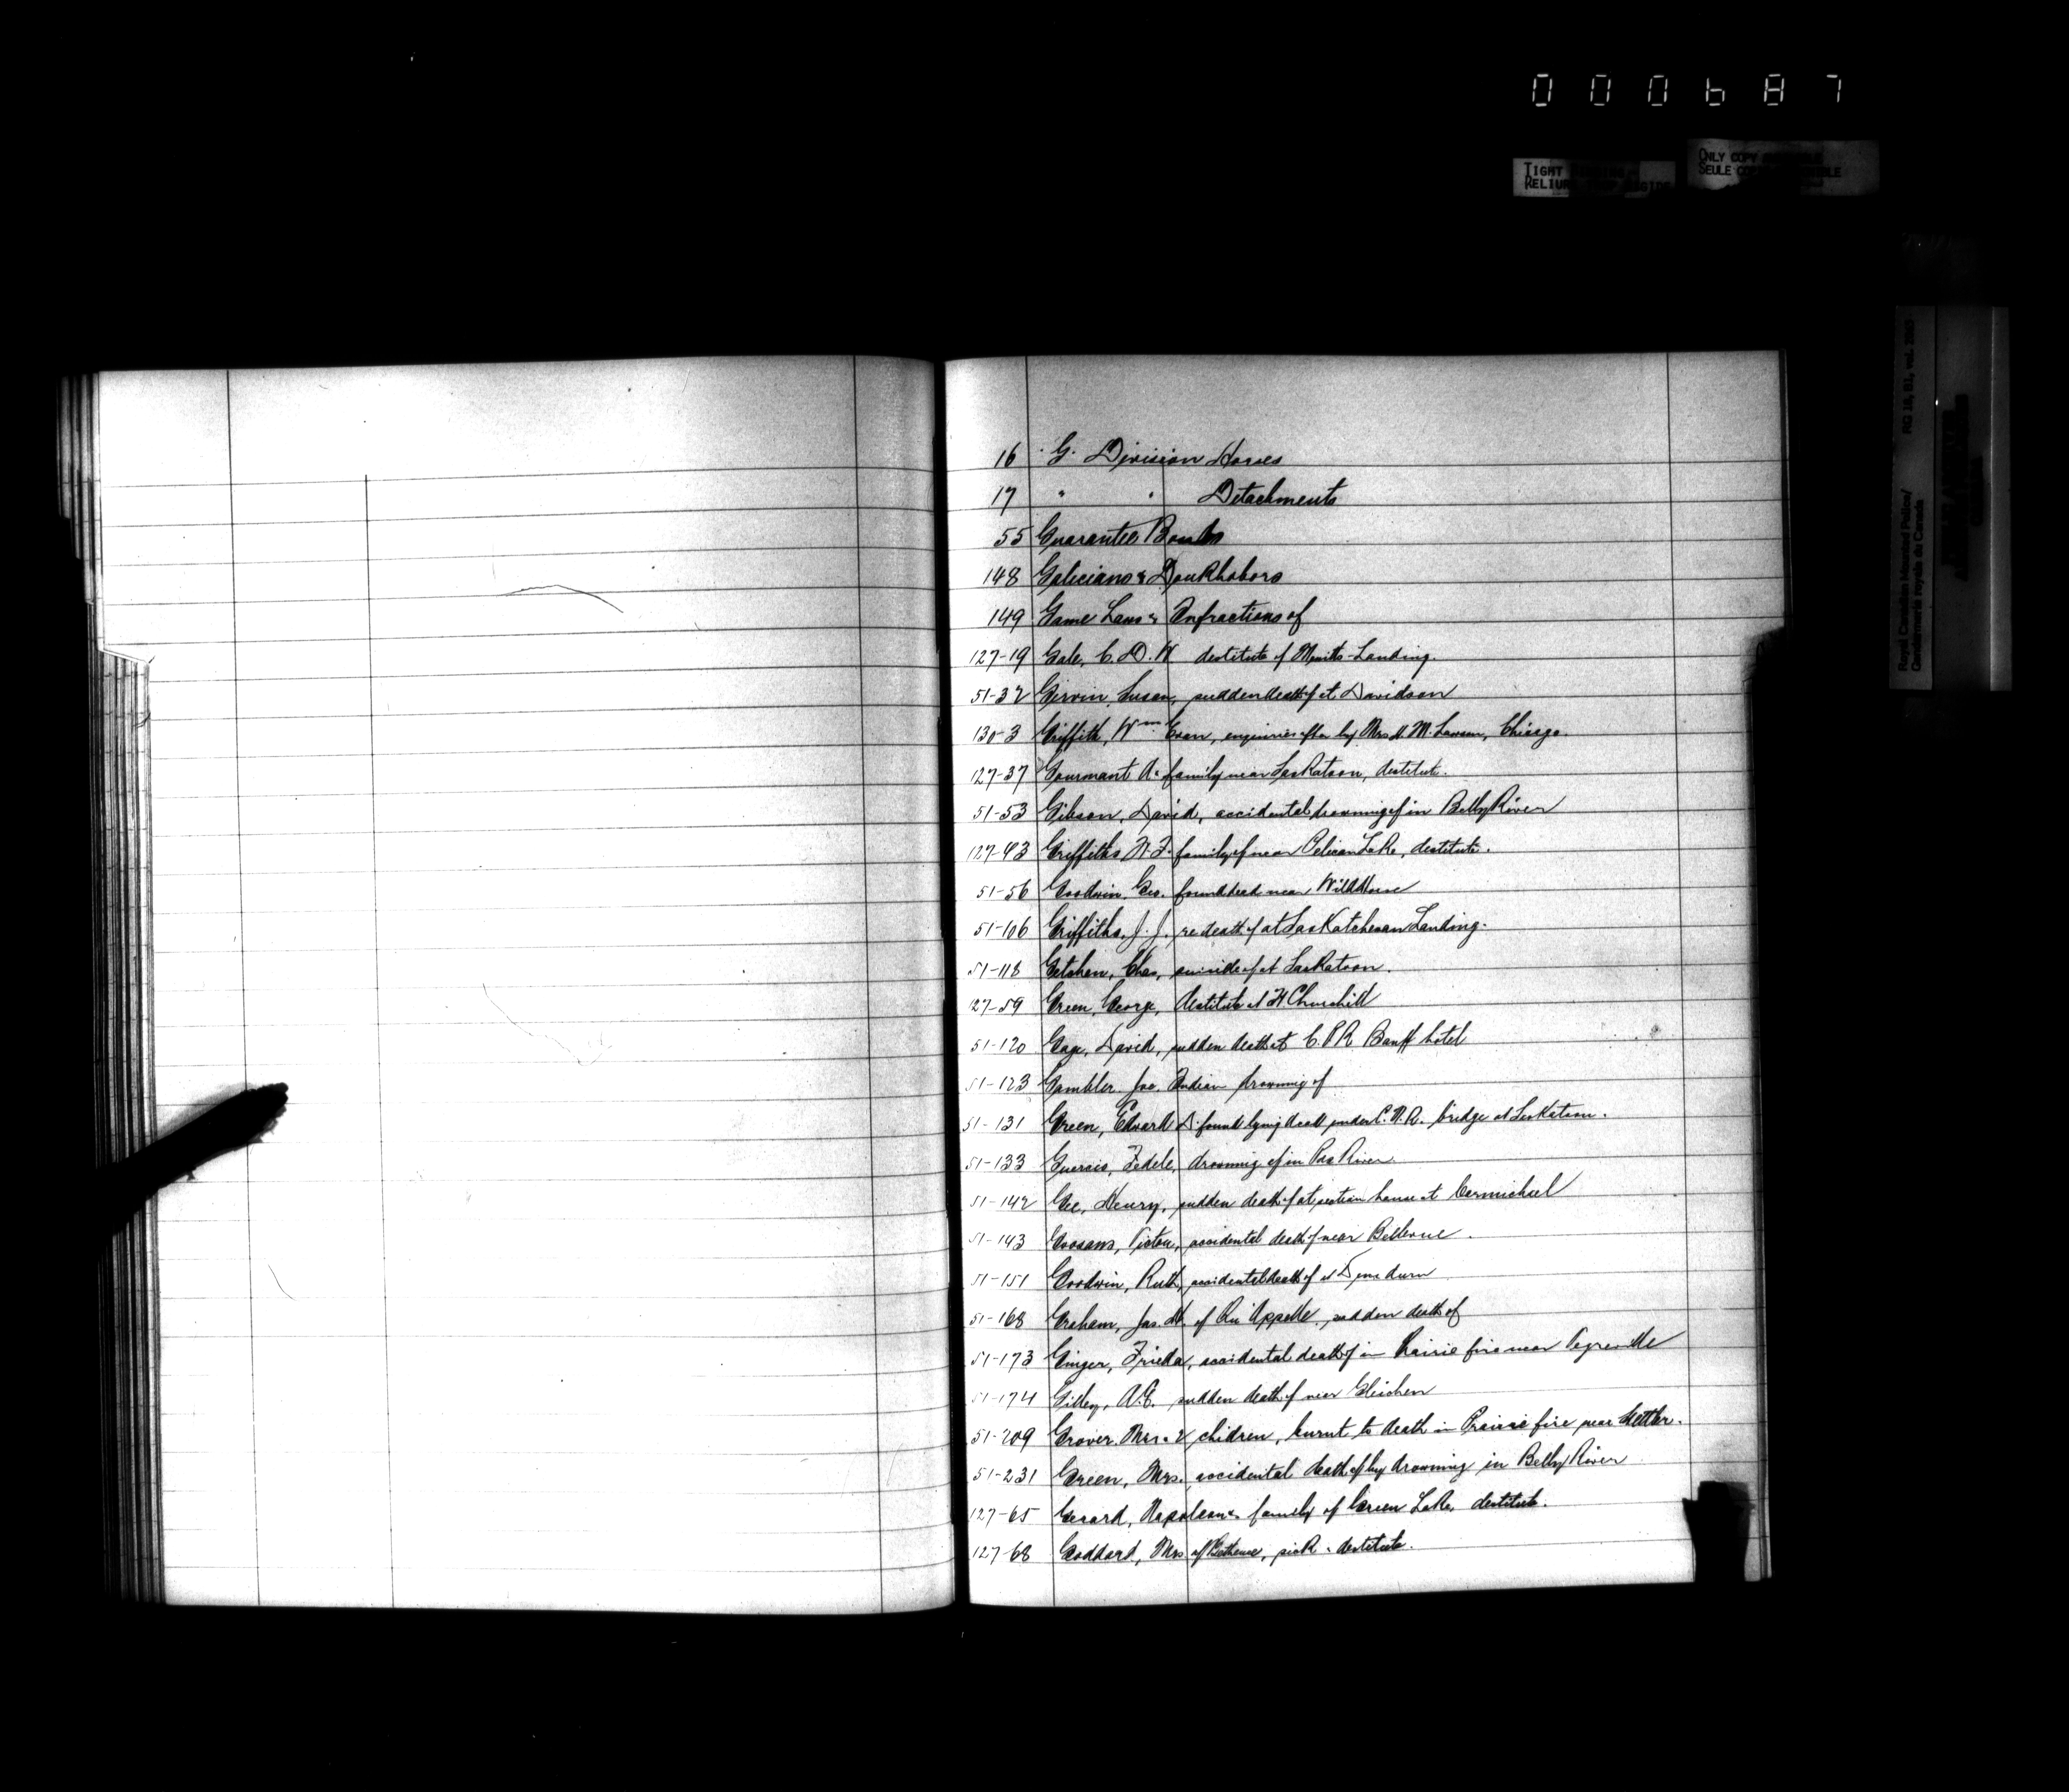 000687
TIGHT
RELIURE
ONLY COPY
SEULE
Royal Canadian Mounted Police/
Gendarmerie royale du Canada
RG 18, B1, vol.
16 G. Division Horses
17 " " Detachments
55 Guarantee Bonds
148 Galicians & Doukhobors
149 Game Laws & Infractions of
127-19 Gale, C. D. W destitute of Landing.
51-32 Girvin, Susan, sudden death of at Davidson
130-3 Griffith, Wm Evan, enquiries after by Mrs H. M. Lawson, Chicago.
127-37 Gourmant A. & family near Saskatoon, destitute.
51-53 Gibson, David, accidental drowning of in Belly River
127-43 Griffiths family of near Pelican Lake, destitute.
51-56 Goodwin, Geo. found dead near Wild Horse
51-106 Griffiths, J. J. re death of at Saskatchewan Landing.
51-118 Chas, suicide of at Saskatoon.
127-59 Green, George, destitute at Ft Churchill
51-120 Gage, David, sudden death at C.P.R. Banff hotel
51-123 Gambler, Indian drowning of
51-131 Green, Edward D. found lying dead under C.N.R. bridge at Saskatoon.
51-133 Fedele, drowning of in River
51-142 Gee, Henry, sudden death of at section house at Carmichael
51-143 accidental death of near Bellevue.
51-151 Goodwin, Ruth, accidental death of at
51-168 Graham, Jas. H. of Qu'Appelle, sudden death of
51-173 Ginger, Frieda, accidental death of in Prairie fire near Vegreville
51-174 A.E. sudden death of near Gleichen
51-209 Grover Mrs. & 2 chidren, burnt to death in Prairie fire near Stettler.
51-231 Green, Mrs. accidental death of by drowning in Belly River
127-65 Gerard, Napoleon & family of Green Lake, destitute.
127-68 Goddard, Mrs of Bethune, sick & destitute.